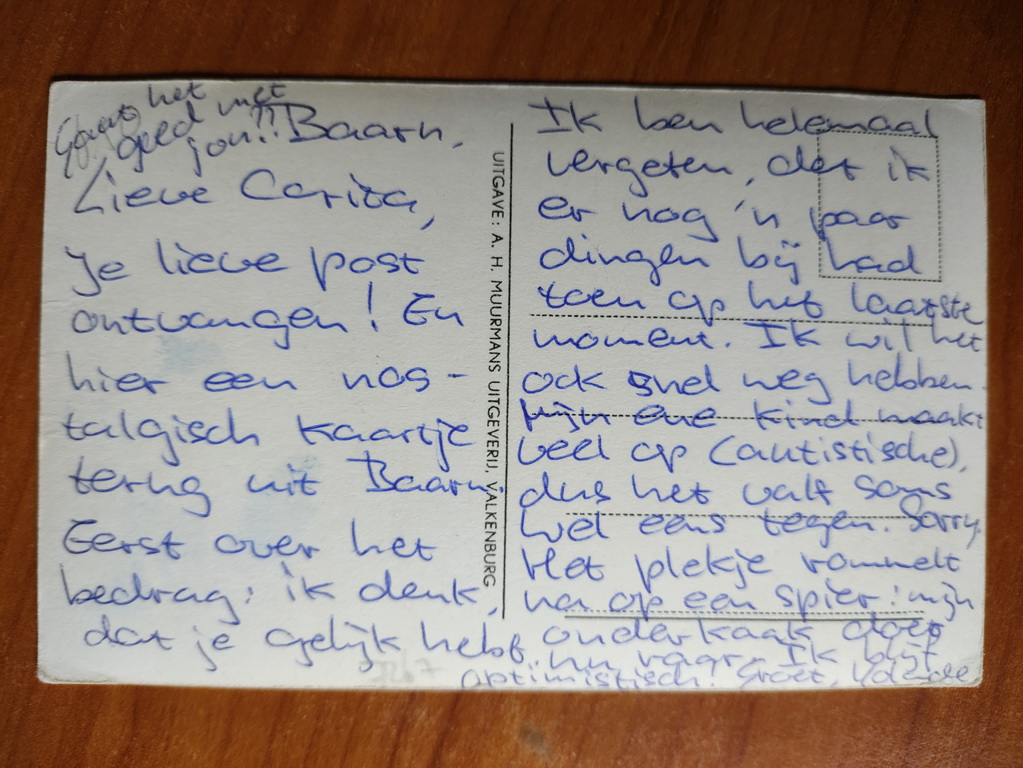 Gaat het
goed met
jou!!
Baarn,
Lieve Carita,
Je lieve post
ontvangen! En
hier een nos-
talgisch kaartje
terug uit Baarn.
Eerst over het
bedrag: ik denk,
dat je gelijk hebt.
UITGAVE: A. H. MUURMANS UITGEVERIJ, VALKENBURG
Ik ben helemaal
vergeten, dat ik
er nog 'n paar
dingen bij had
toen op het laatste
moment. Ik wil het
ook snel weg hebben.
Mijn ene kind maakt
veel op (autistische),
dus het valt soms
wel eens tegen. Sorry.
Het plekje rommelt
na op een spier: mijn
onderkaak doet
nu raar. Ik blijf
optimistisch! Groet,